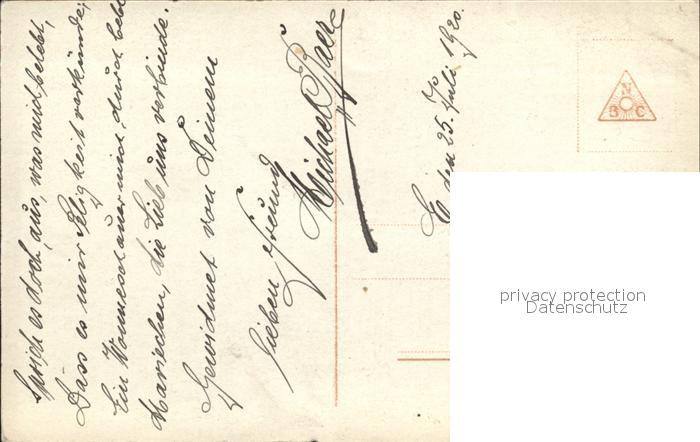 Sprich es doch, aus, was mich belebt,
Dass es mir Seligkeit verkünde,
Ein Wonneschauer mich durch bebt
Mariechen, die Lieb uns verbinde.
Gewidmet von Deinem
lieben Freund
Michael Baer
den 25. Juli 1920.
N
B C
privacy protection
Datenschutz